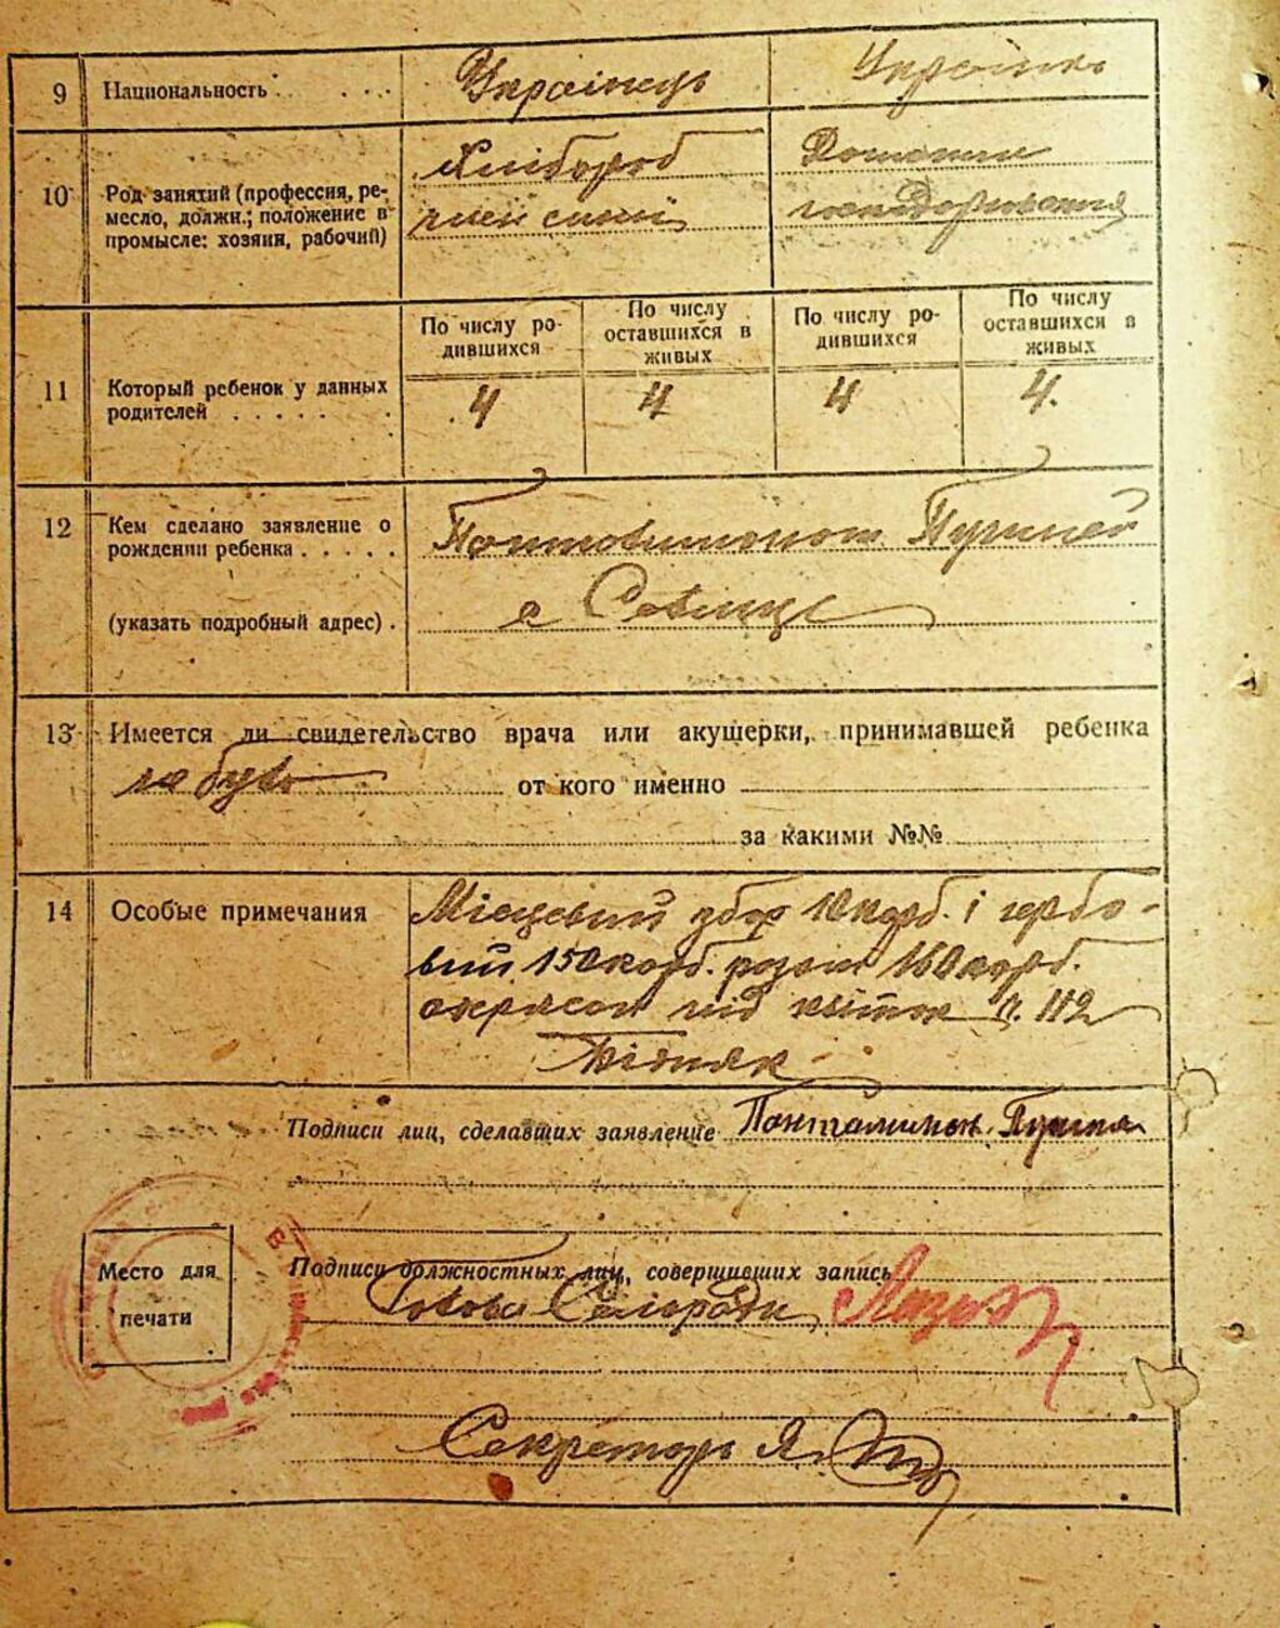 9 Национальность . . . . . Українець Українка
10 Род занятий (профессия, ремесло, должн.; положение в промысле: хозяин, рабочий)
Хлібороб
Домашнє
господарювання
По числу родившихся
По числу оставшихся в живых
По числу родившихся
По числу оставшихся в живых
11 Который ребенок у данных родителей . . . . . .
4 4 4 4.
12 Кем сделано заявление о рождении ребенка . . . . .
(указать подробный адрес) .
с
13 Имеется ли свидетельство врача или акушерки, принимавшей ребенка
не було от кого именно
за какими №№
14 Особые примечания
Місцевий збор 10 карб. і гербо-
вий 150 карб. разом 160 карб.
під квіток 112
Бідняк
Подписи лиц, сделавших заявление
Место для
печати
Подписи должностных лиц, совершивших запись
Голова Сільради
Секретарь Я.